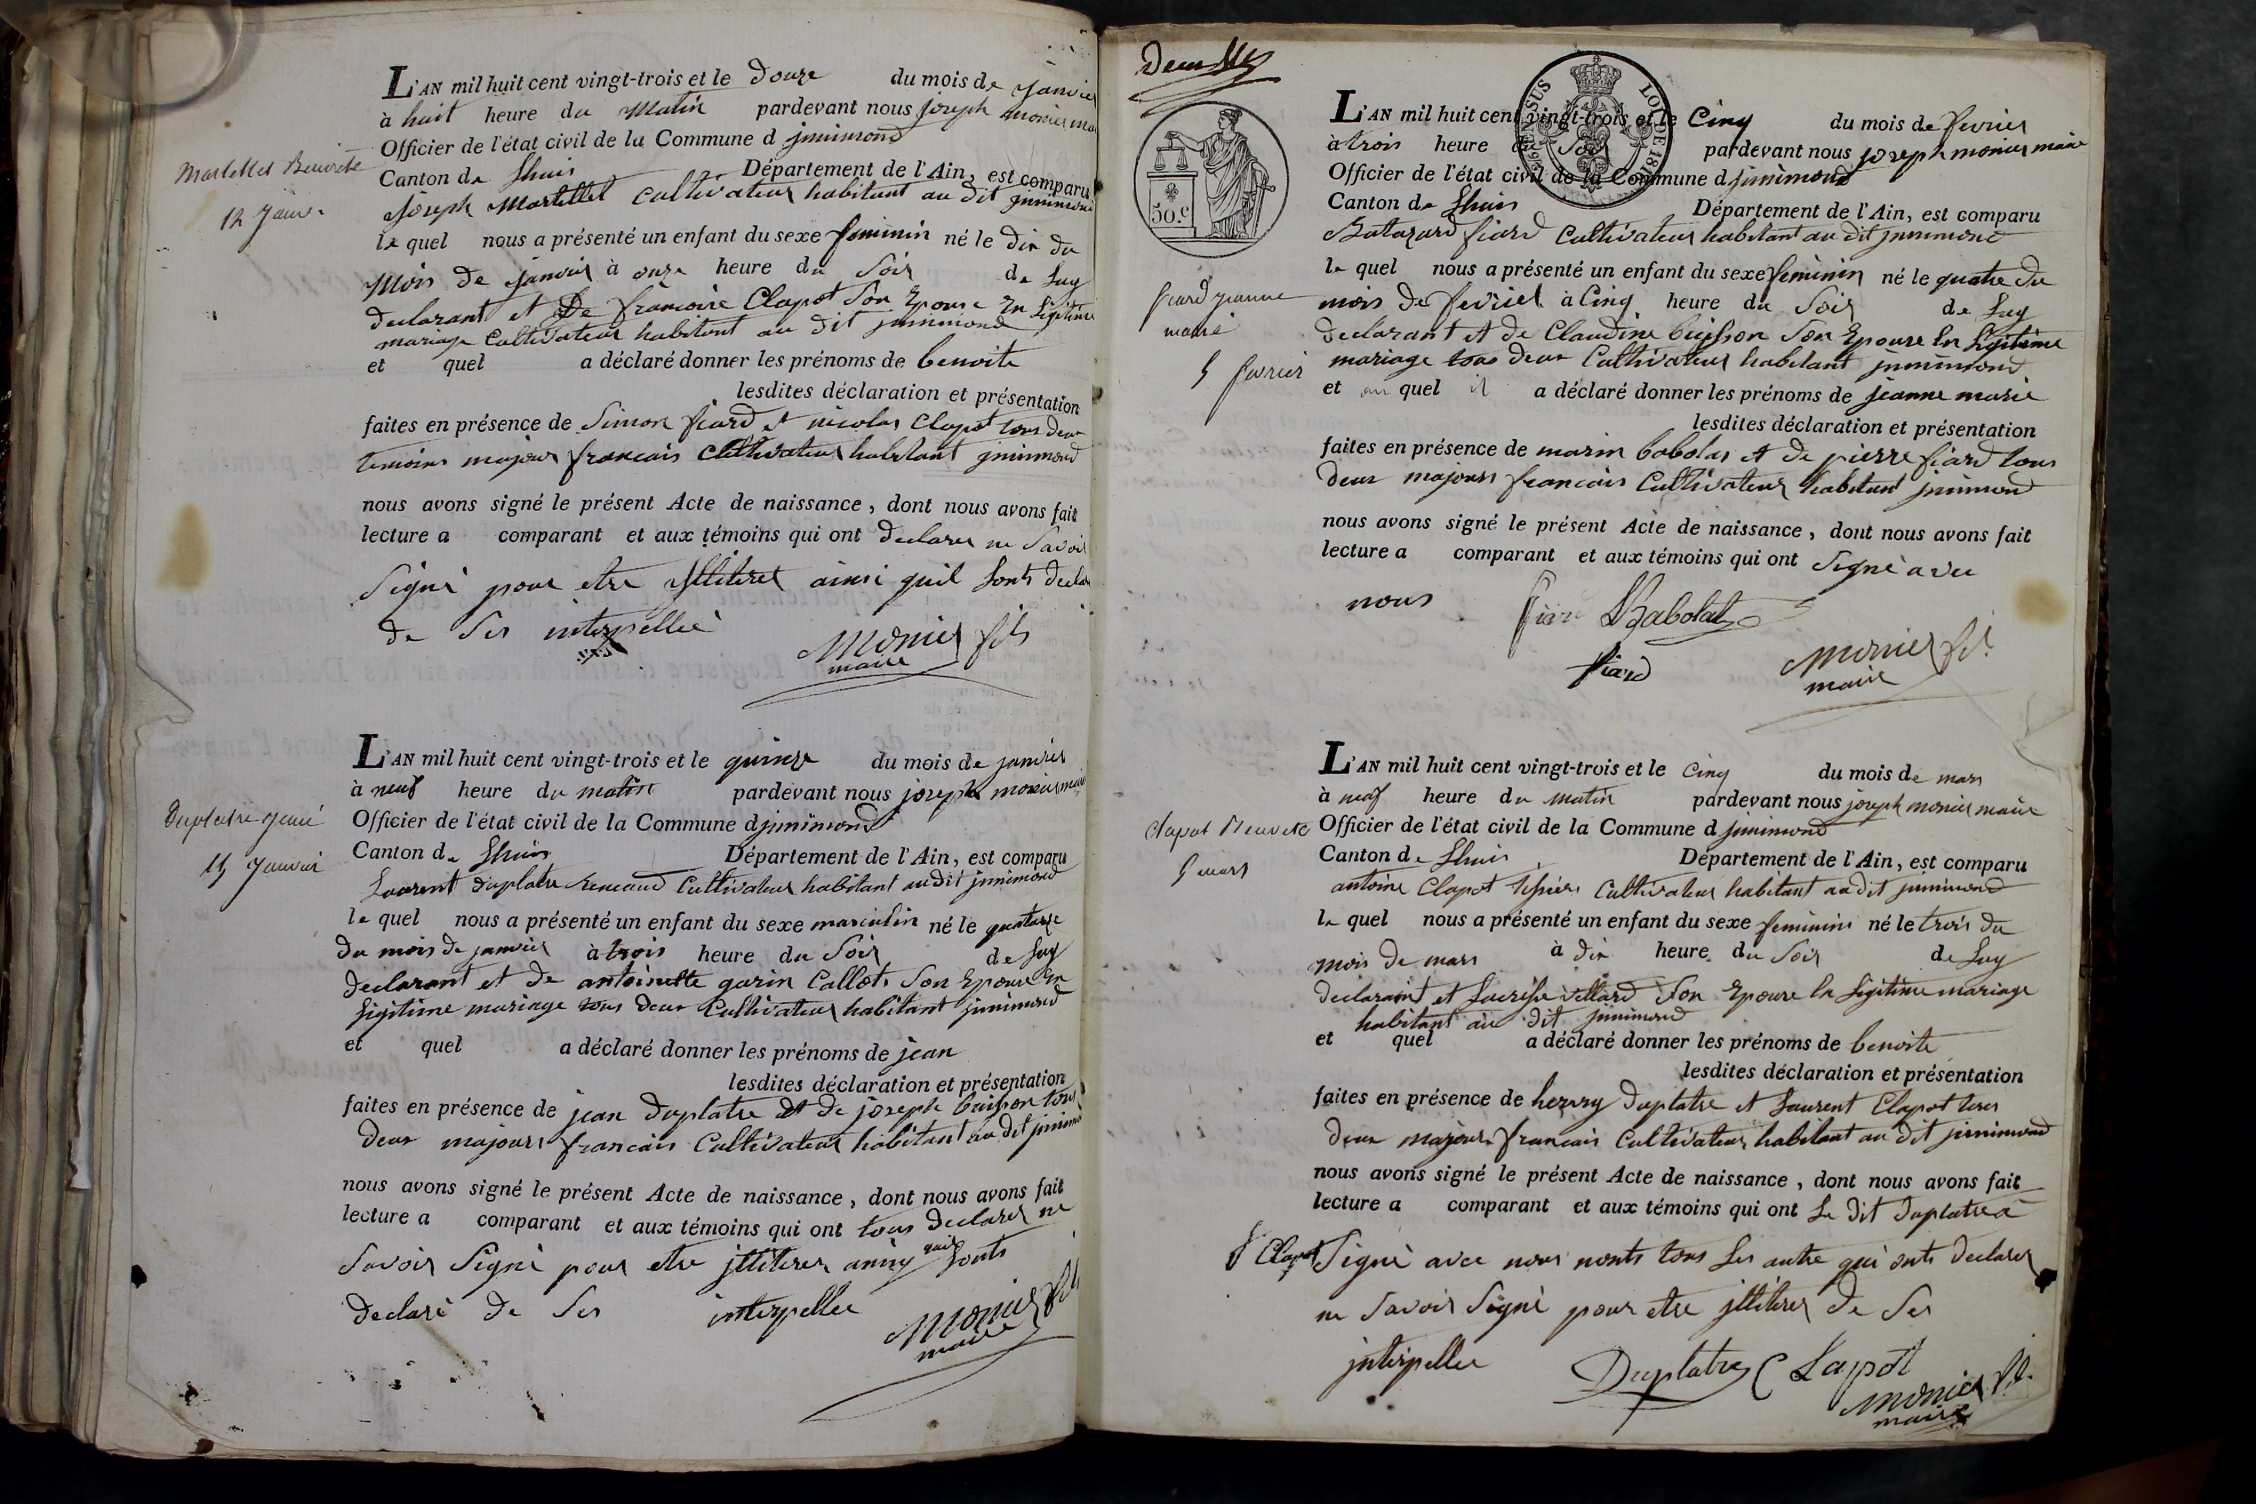 Martellet Benoite
12 Janv.
L'AN mil huit cent vingt-trois et le douze du mois de janvier
à huit heure du matin pardevant nous joseph monier
Officier de l'état civil de la Commune d jnnimond
Canton de Lhuis Département de l'Ain, est comparu
Joseph Martellet cultivateur habitant au dit jnnimond
le quel nous a présenté un enfant du sexe feminin né le dix du
mois de janvier à onze heure du Soir de Luy
declarant et De francoise Clapot Son Epouse En Legitime
mariage Cultivateur habitant au dit jnnimond
et quel a déclaré donner les prénoms de benoite
lesdites déclaration et présentation
faites en présence de Simon fiard et nicolas Clapot tous deux
temoins majeur francais Cultivateur habitant jnnimond
nous avons signé le présent Acte de naissance, dont nous avons fait
lecture a comparant et aux témoins qui ont declarer ne Savoir
Signé pour etre jlliteret ainsi quil Sonts declar
de Ses interpellée
Monier fils
maire
Duplatre jean
15 Janvier
L'AN mil huit cent vingt-trois et le quinze du mois de janvier
à neuf heure du matin pardevant nous joseph monier maire
Officier de l'état civil de la Commune d jnnimond
Canton de Lhuis Département de l'Ain, est comparu
Laurent duplatre Cultivateur habitant au dit jnnimond
le quel nous a présenté un enfant du sexe masculin né le quatorze
du mois de janvier à trois heure du Soir de Luy
declarant et de antoinette garin Callot Son Epouse En
Legitime mariage tous deux Cultivateur habitant jnnimond
et quel a déclaré donner les prénoms de jean
lesdites déclaration et présentation
faites en présence de jean duplatre et de joseph buisson tous
deux majours francais Cultivateur habitant au dit jnnimond
nous avons signé le présent Acte de naissance, dont nous avons fait
lecture a comparant et aux témoins qui ont tous declarer ne
Savoir Signé pour etre jlliterer quil Sonts
declaré de Ses interpellee
Monier fils
maire
50.c
LOI DE 1816
L'AN mil huit cent vingt-trois et le Cinq du mois de fevrier
à trois heure du Soir pardevant nous joseph monier maire
Officier de l'état civil de la Commune d jnnimond
Canton de Lhuis Département de l'Ain, est comparu
Batazard fiard Cultivateur habitant au dit jnnimond
le quel nous a présenté un enfant du sexe feminin né le quatre du
fiard jeanne
marie
5 fevrier
mois de fevrier à Cinq heure du Soir de Luy
declarant et de Claudine buisson Son Epouse En Legitime
mariage tous deux Cultivateur habitant jnnimond
et au quel il a déclaré donner les prénoms de jeanne marie
lesdites déclaration et présentation
faites en présence de marin babolas et de pierre fiard tous
deux majours francais Cultivateur habitant jnnimond
nous avons signé le présent Acte de naissance, dont nous avons fait
lecture a comparant et aux témoins qui ont Signé avec
nous
fiard Babolat
fiard
Monier fils
maire
Clapot Benoite
5 mars
L'AN mil huit cent vingt-trois et le Cinq du mois de mars
à neuf heure du matin pardevant nous joseph monier maire
Officier de l'état civil de la Commune d jnnimond
Canton de Lhuis Département de l'Ain, est comparu
antoine Clapot Cultivateur habitant au dit jnnimond
le quel nous a présenté un enfant du sexe feminin né le trois du
mois de mars à dix heure du Soir de Luy
declaraint et villard Son Epouse En Legitime mariage
habitant au dit jnnimond
et quel a déclaré donner les prénoms de benoite
lesdites déclaration et présentation
faites en présence de henry duplatre et Laurent Clapot tous
deux majours francais Cultivateur habitant au dit jnnimond
nous avons signé le présent Acte de naissance, dont nous avons fait
lecture a comparant et aux témoins qui ont Le dit duplatre a
Clapot Signé avec nous nonts tous Les autre qui onts declarer
ne Savoir Signé pour etre jlliterer de Ses
jnterpellee
Duplatre C Lapot
Monier fils
maire